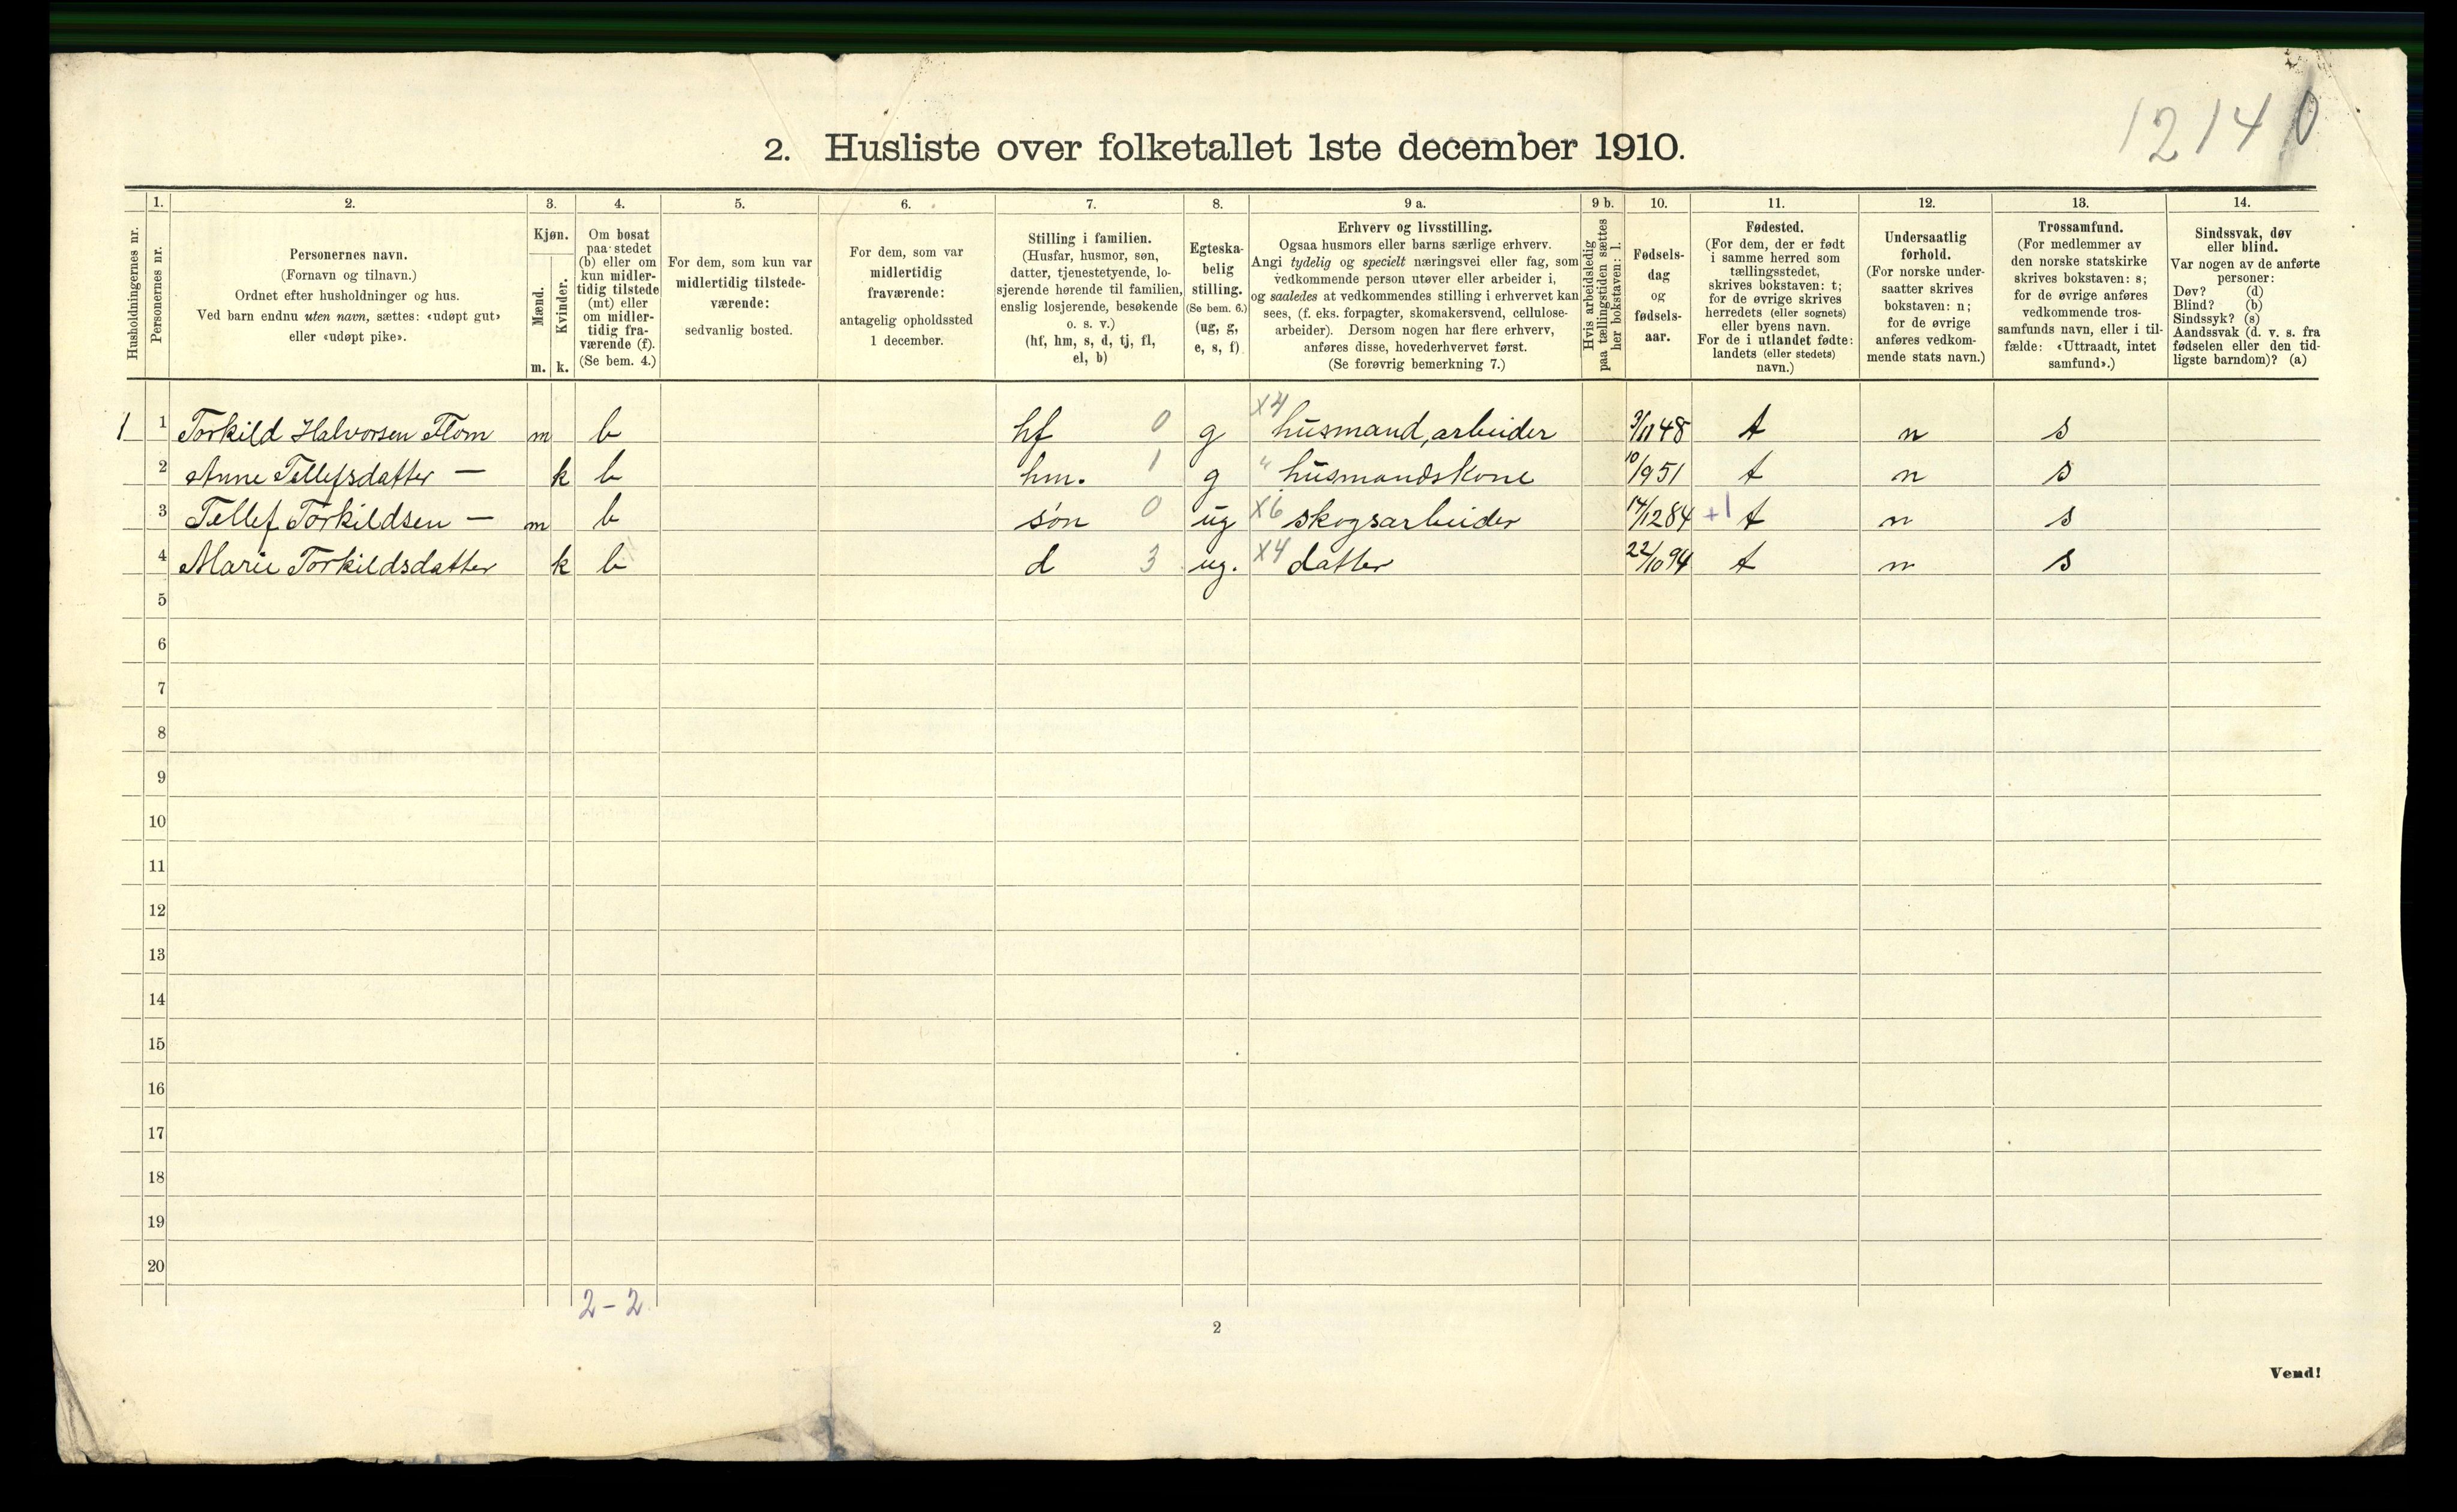 12140
2. Husliste over folketallet 1ste december 1910.
Husholdningernes nr.
1.
Personernes nr.
2.
Personernes navn.
(Fornavn og tilnavn.)
Ordnet efter husholdninger og hus.
Ved barn endnu uten navn, sættes: «udøpt gut»
eller «udøpt pike».
3.
Kjøn.
Mænd.
Kvinder.
m.
k.
4.
Om bosat
paa stedet
(b) eller om
kun midler-
tidig tilstede
(mt) eller
om midler-
tidig fra-
værende (f).
(Se bem. 4.)
5.
For dem, som kun var
midlertidig tilstede-
værende:
sedvanlig bosted.
6.
For dem, som var
midlertidig
fraværende:
antagelig opholdssted
1 december.
7.
Stilling i familien.
(Husfar, husmor, søn,
datter, tjenestetyende, lo-
sjerende hørende til familien,
enslig losjerende, besøkende
o. s. v.)
(hf, hm, s, d, tj, fl,
el, b)
8.
Egteska-
belig
stilling.
(Se bem. 6.)
(ug, g,
e, s, f)
9 a.
Erhverv og livsstilling.
Ogsaa husmors eller barns særlige erhverv.
Angi tydelig og specielt næringsvei eller fag, som
vedkommende person utøver eller arbeider i,
og saaledes at vedkommendes stilling i erhvervet kan
sees, (f. eks. forpagter, skomakersvend, cellulose-
arbeider). Dersom nogen har flere erhverv,
anføres disse, hovederhvervet først.
(Se forøvrig bemerkning 7.)
9 b.
Hvis arbeidsledig
paa tællingstiden sættes
her bokstaven: l.
10.
Fødsels-
dag
og
fødsels-
aar.
11.
Fødested.
(For dem, der er født
i samme herred som
tællingsstedet,
skrives bokstaven: t;
for de øvrige skrives
herredets (eller sognets)
eller byens navn.
For de i utlandet fødte:
landets (eller stedets)
navn.)
12.
Undersaatlig
forhold.
(For norske under-
saatter skrives
bokstaven: n;
for de øvrige
anføres vedkom-
mende stats navn.)
13.
Trossamfund.
(For medlemmer av
den norske statskirke
skrives bokstaven: s;
for de øvrige anføres
vedkommende tros-
samfunds navn, eller i til-
fælde: «Uttraadt, intet
samfund».)
14.
Sindssvak, døv
eller blind.
Var nogen av de anførte
personer:
Døv? (d)
Blind? (b)
Sindssyk? (s)
Aandssvak (d. v. s. fra
fødselen eller den tid-
ligste barndom)? (a)
1 1 Torkild Halvorsen Flom m b hf 0 g X4 husmand, arbeider 3/11 48 t n s
2 Anne Tellefsdatter — k b hm. 1 g " husmandskone 10/9 51 t n s
3 Tellef Torkildsen — m b søn 0 ug X6 skogsarbeider 17/12 84 +1 t n s
4 Marie Torkildsdatter k b d 3 ug. X4 datter 22/10 94 t n s
5
6
7
8
9
10
11
12
13
14
15
16
17
18
19
20
2-2
2
Vend!